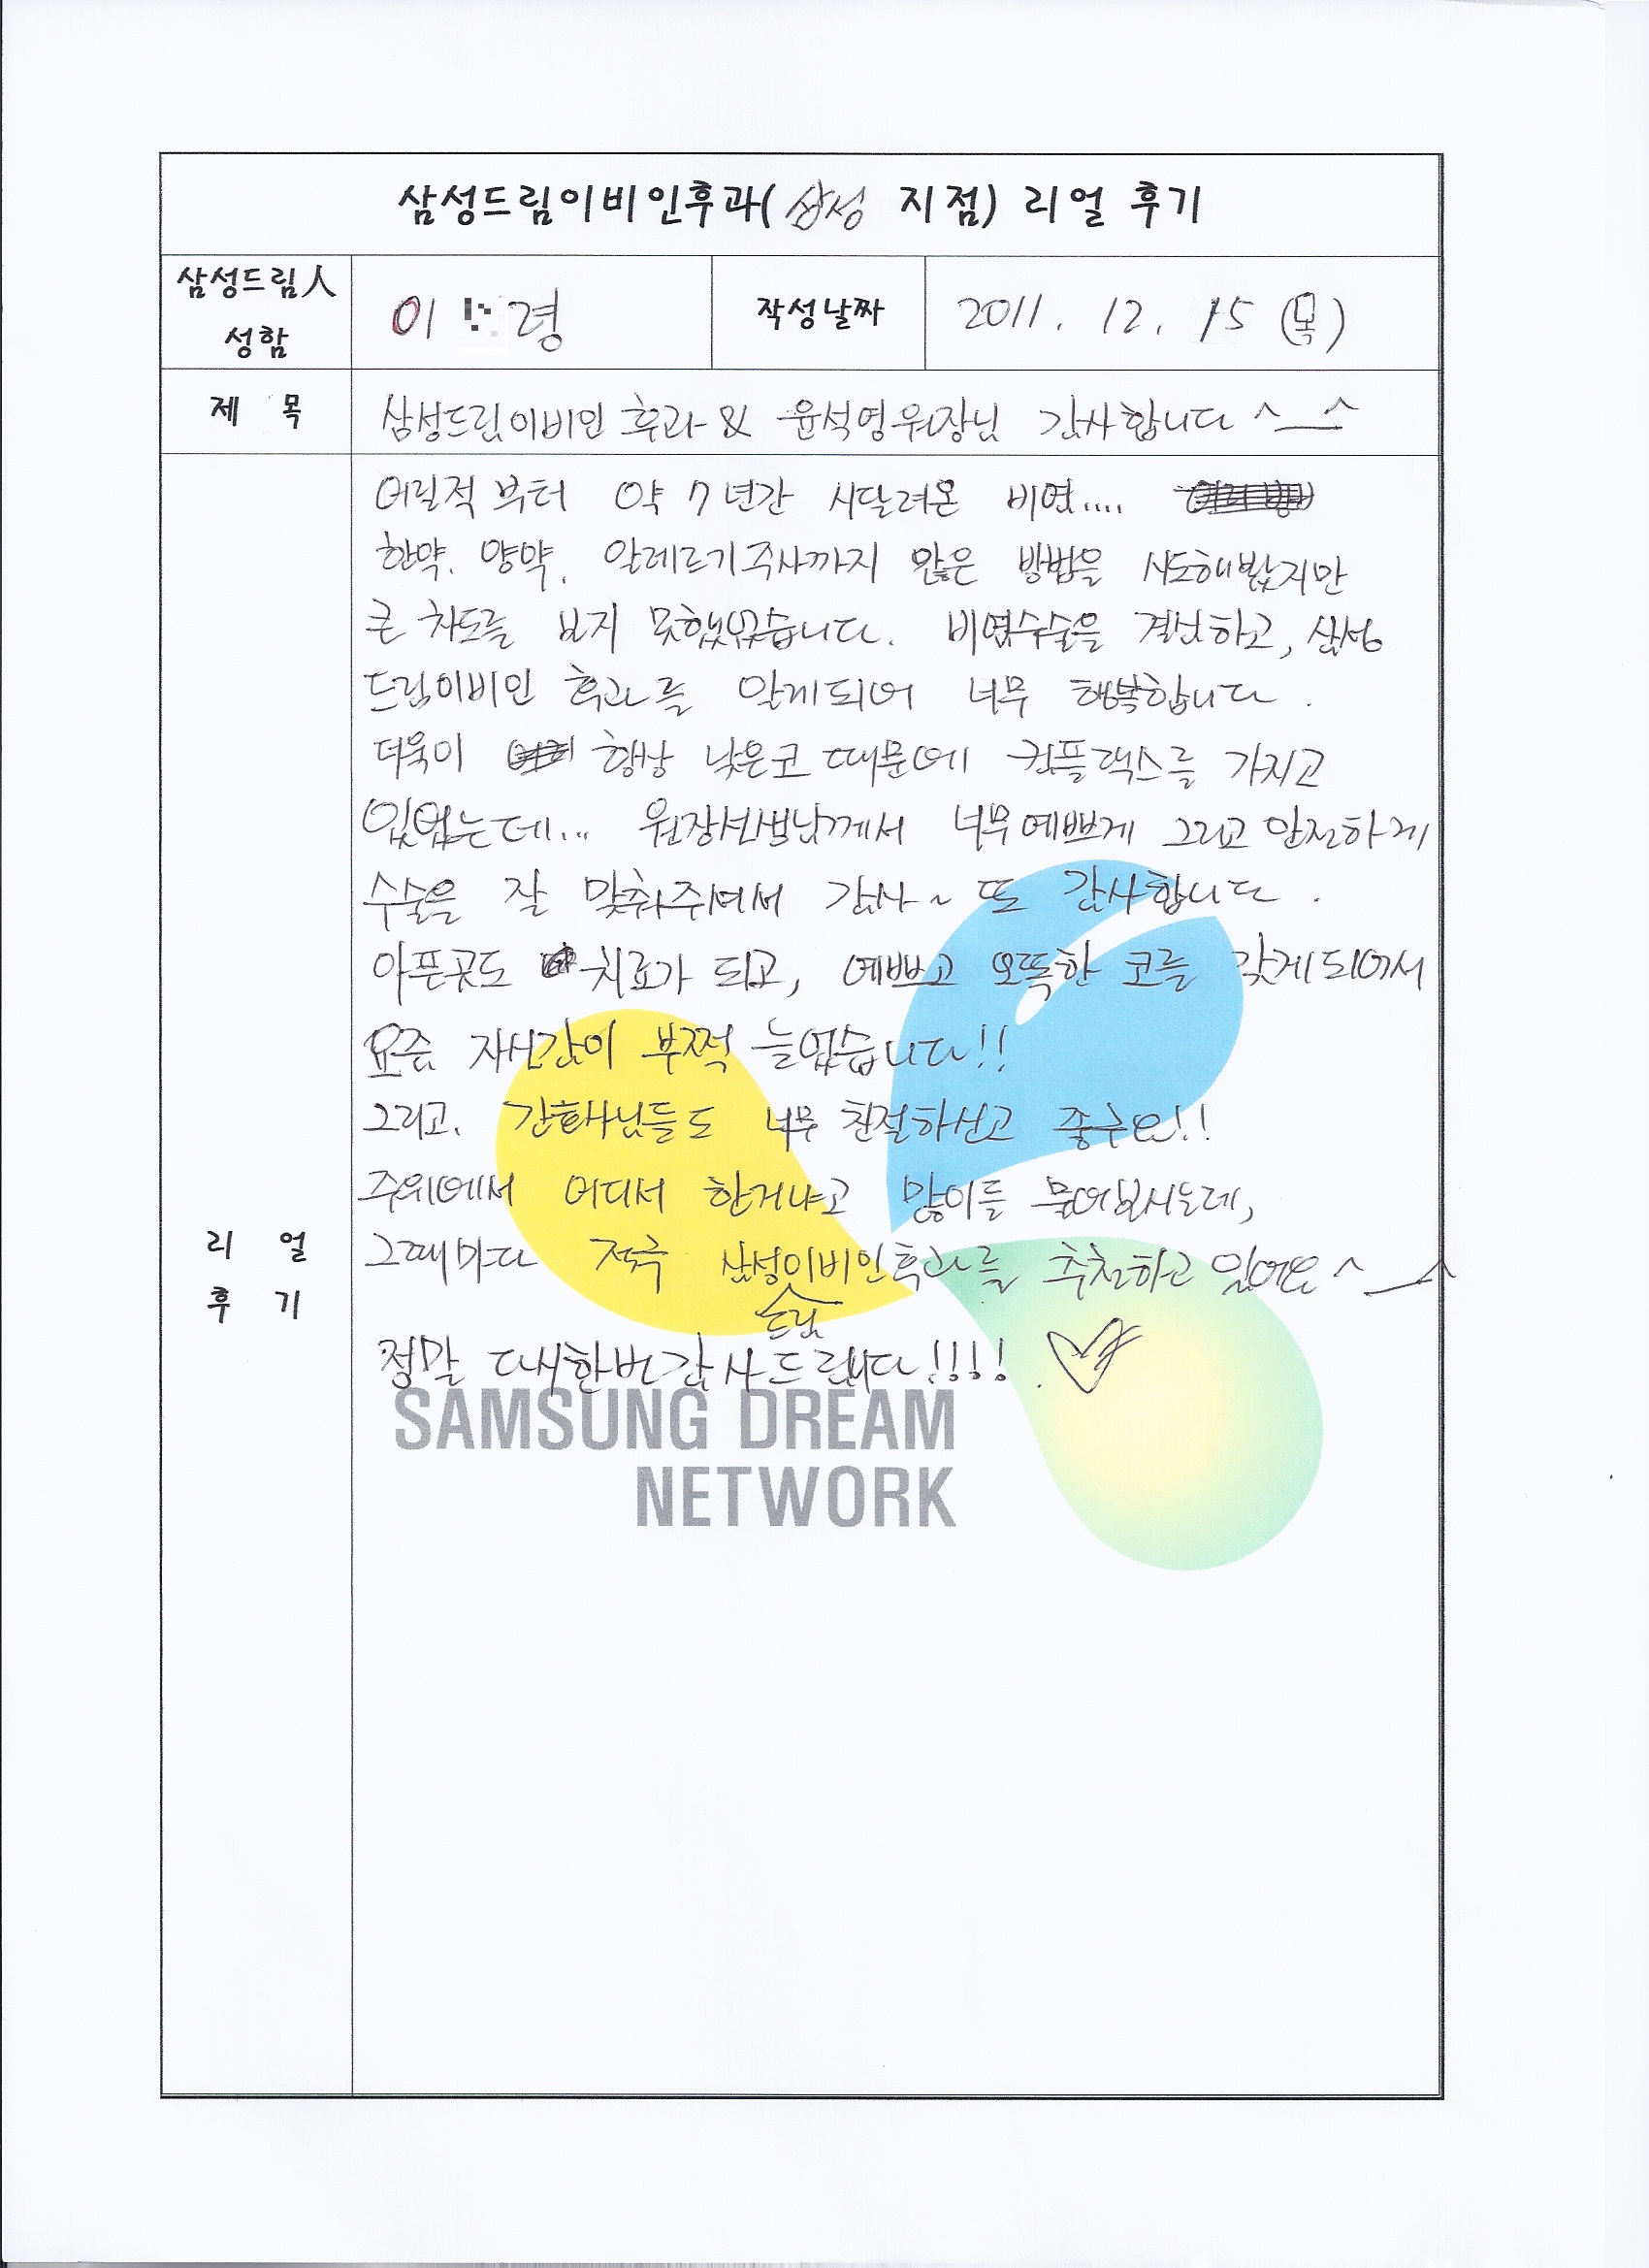 삼성드림이비인후과(삼성 지점) 리얼 후기
삼성드림人
성함
이 령
작성날짜
2011. 12. 15 (목)
제 목
삼성드림이비인후과 & 윤석영원장님 감사합니다 ^__^
어릴적부터 약 7년간 시달려온 비염....
한약. 양약. 알레르기주사까지 많은 방법을 시도해봤지만
큰 차도를 보지 못했었습니다. 비염수술을 결심하고, 삼성
드림이비인후과를 알게되어 너무 행복합니다.
더욱이 항상 낮은코 때문에 컴플랙스를 가지고
있었는데... 원장선생님께서 너무 예쁘게 그리고 안전하게
수술을 잘 맞춰주셔서 감사~ 또 감사합니다.
아픈곳도 치료가 되고, 예쁘고 오똑한 코를 갖게되어서
요즘 자신감이 부쩍 늘었습니다!!
그리고. 간호사님들도 너무 친절하시고 좋구요!!
주위에서 어디서 한거냐고 많이들 물어보시는데,
그때마다 적극 삼성이비인후과를 추천하고 있어요^__^
드림
정말 다시한번 감사드립니다!!!!
SAMSUNG DREAM
NETWORK
리 얼
후 기